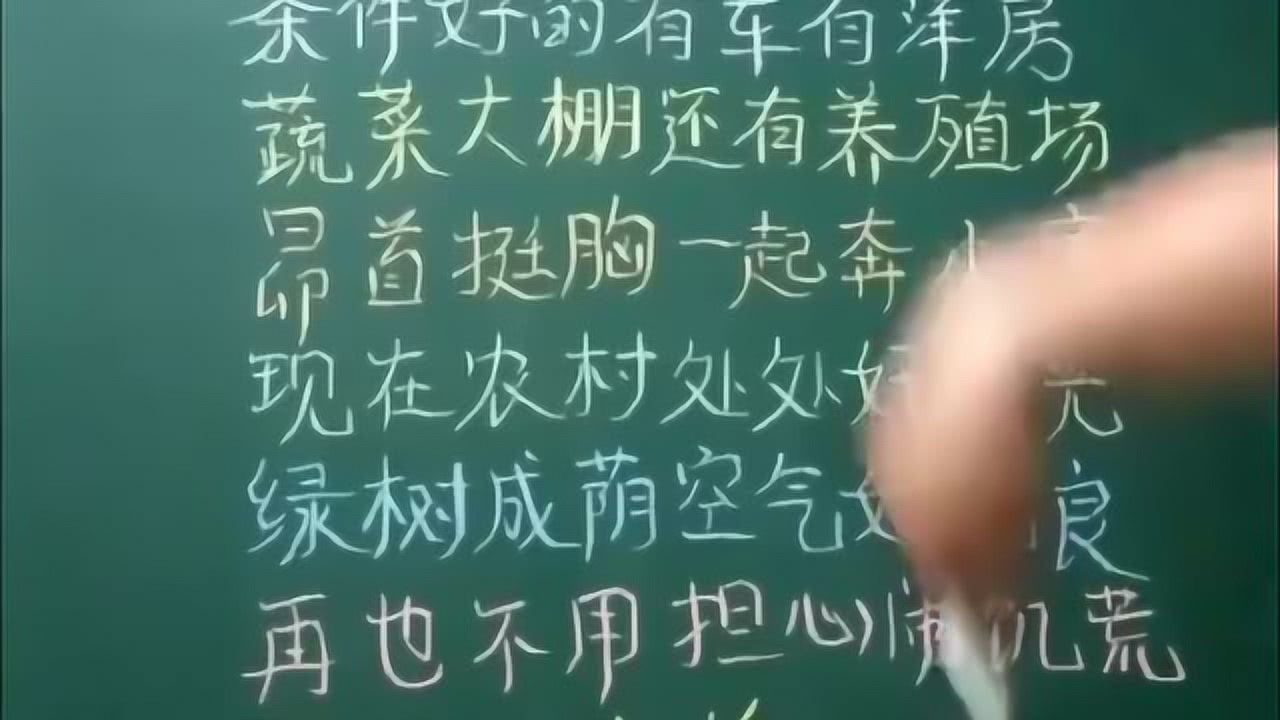 条件好的有车有洋房
蔬菜大棚还有养殖场
昂首挺胸一起奔小
现在农村处处好 光
绿树成荫空气 良
再也不用担心闹饥荒